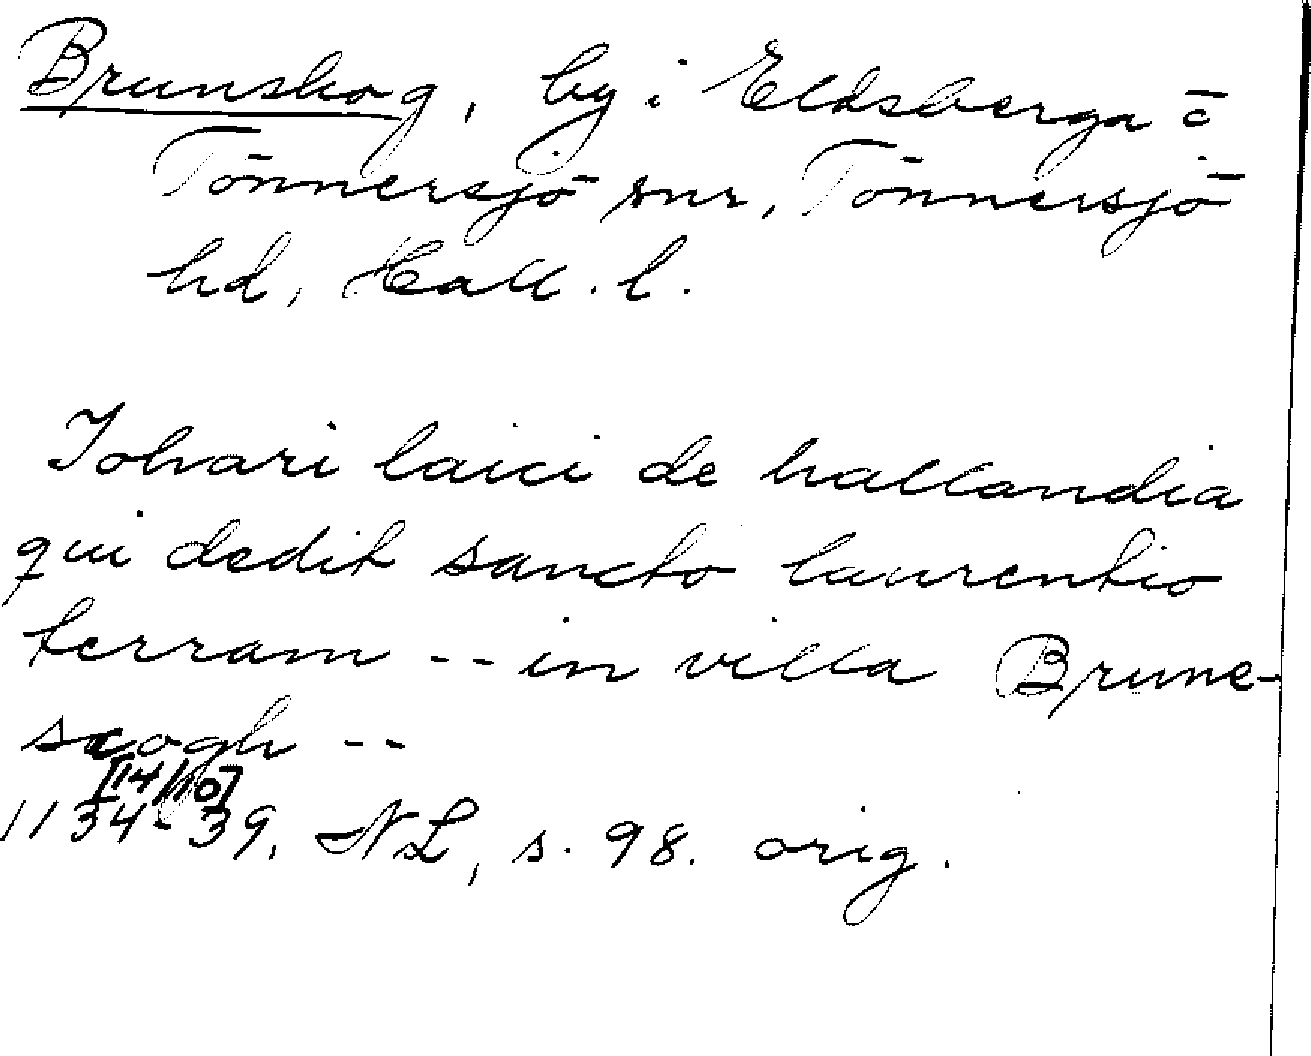 Brunskog, by i Eldsberga o
Tönnersjö snr, Tönnersjö
hd, Hall. l.
Johari laici de hallandia
qui dedit sancto laurentio
terram -- in villa Brune-
scogh --
[14/10]
1134-39, NL, s. 98. orig.